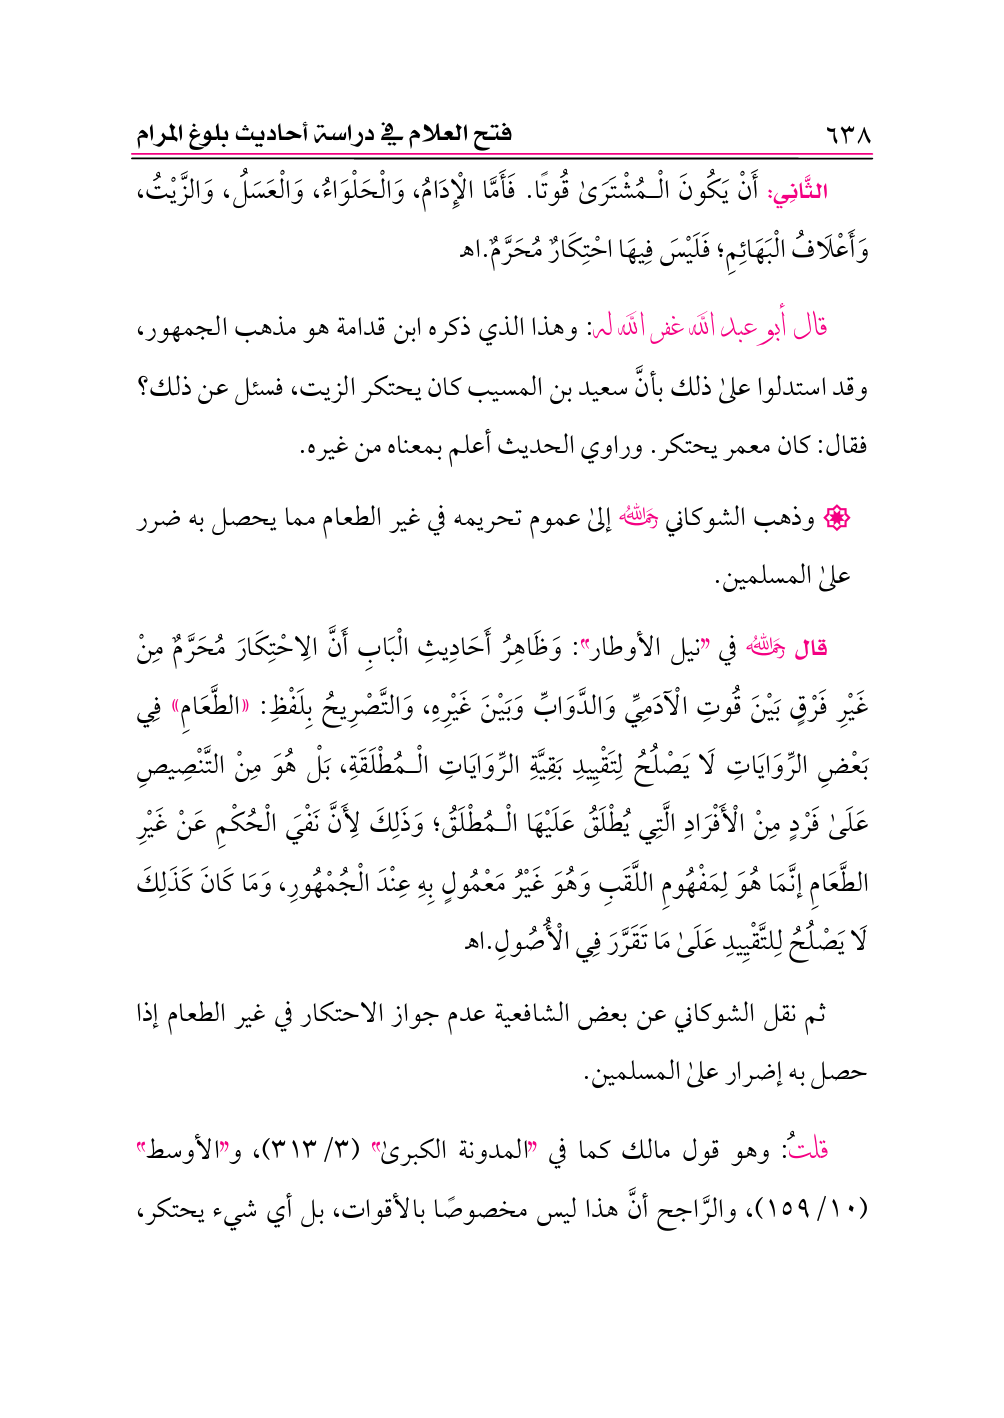 ٦٣٨ فتح العلام في دراسة أحاديث بلوغ المرام
الثَّانِي: أَنْ يَكُونَ الْـمُشْتَرَىٰ قُوتًا. فَأَمَّا الْإِدَامُ، وَالْحَلْوَاءُ، وَالْعَسَلُ، وَالزَّيْتُ،
وَأَعْلَافُ الْبَهَائِمِ؛ فَلَيْسَ فِيهَا احْتِكَارٌ مُحَرَّمٌ.اهـ
قال أبو عبد الله غفر الله له: وهذا الذي ذكره ابن قدامة هو مذهب الجمهور،
وقد استدلوا علىٰ ذلك بأنَّ سعيد بن المسيب كان يحتكر الزيت، فسئل عن ذلك؟
فقال: كان معمر يحتكر. وراوي الحديث أعلم بمعناه من غيره.
۞ وذهب الشوكاني رحمه الله إلىٰ عموم تحريمه في غير الطعام مما يحصل به ضرر
علىٰ المسلمين.
قال رحمه الله في "نيل الأوطار": وَظَاهِرُ أَحَادِيثِ الْبَابِ أَنَّ الِاحْتِكَارَ مُحَرَّمٌ مِنْ
غَيْرِ فَرْقٍ بَيْنَ قُوتِ الْآدَمِيِّ وَالدَّوَابِّ وَبَيْنَ غَيْرِهِ، وَالتَّصْرِيحُ بِلَفْظِ: «الطَّعَامِ» فِي
بَعْضِ الرِّوَايَاتِ لَا يَصْلُحُ لِتَقْيِيدِ بَقِيَّةِ الرِّوَايَاتِ الْـمُطْلَقَةِ، بَلْ هُوَ مِنْ التَّنْصِيصِ
عَلَىٰ فَرْدٍ مِنْ الْأَفْرَادِ الَّتِي يُطْلَقُ عَلَيْهَا الْـمُطْلَقُ؛ وَذَلِكَ لِأَنَّ نَفْيَ الْحُكْمِ عَنْ غَيْرِ
الطَّعَامِ إنَّمَا هُوَ لِمَفْهُومِ اللَّقَبِ وَهُوَ غَيْرُ مَعْمُولٍ بِهِ عِنْدَ الْجُمْهُورِ، وَمَا كَانَ كَذَلِكَ
لَا يَصْلُحُ لِلتَّقْيِيدِ عَلَىٰ مَا تَقَرَّرَ فِي الْأُصُولِ.اهـ
ثم نقل الشوكاني عن بعض الشافعية عدم جواز الاحتكار في غير الطعام إذا
حصل به إضرار علىٰ المسلمين.
قلتُ: وهو قول مالك كما في "المدونة الكبرىٰ" (٣/ ٣١٣)، و"الأوسط"
(١٠/ ١٥٩)، والرَّاجح أنَّ هذا ليس مخصوصًا بالأقوات، بل أي شيء يحتكر،